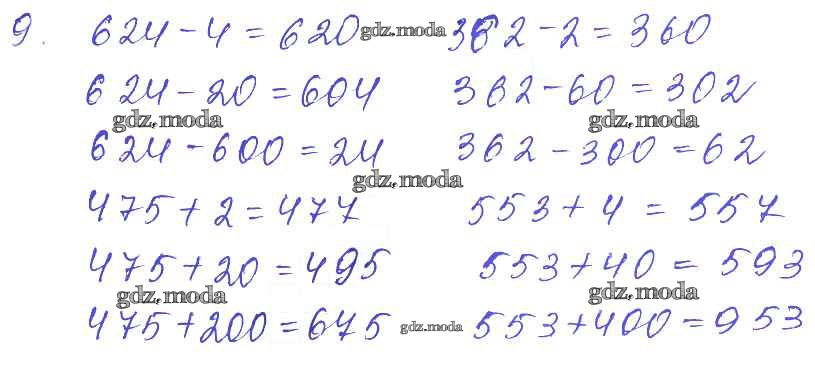 9. 624 - 4 = 620 gdz.moda 362 - 2 = 360
624 - 20 = 604 362 - 60 = 302
gdz.moda gdz.moda
624 - 600 = 24 362 - 300 = 62
gdz.moda
475 + 2 = 477 553 + 4 = 557
475 + 20 = 495 553 + 40 = 593
gdz.moda gdz.moda
475 + 200 = 675 gdz.moda 553 + 400 = 953